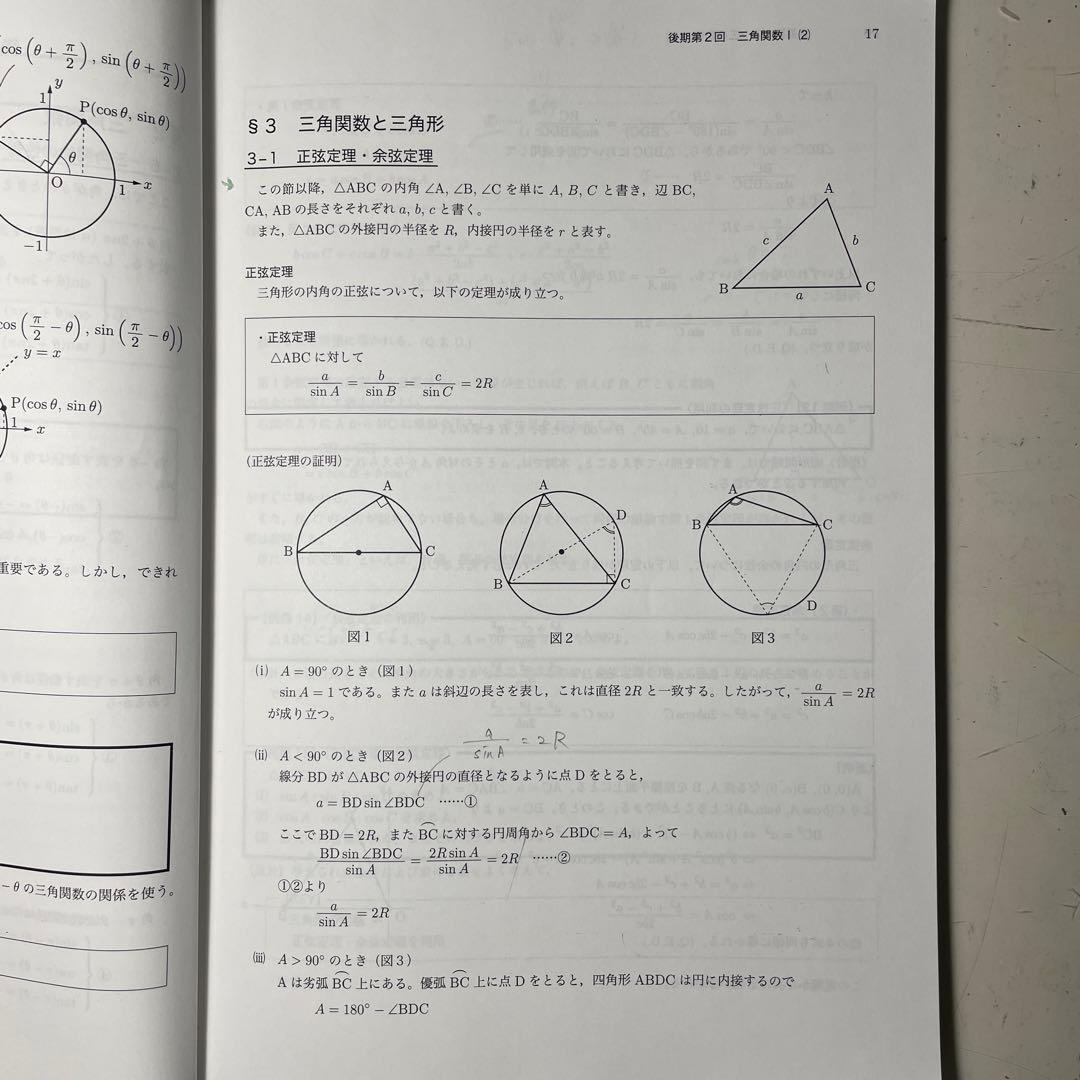 cos(θ + π/2), sin(θ + π/2))
y
1
P(cos θ, sin θ)
θ
O
1
x
−1
cos(π/2 − θ), sin(π/2 − θ))
y = x
P(cos θ, sin θ)
1
x
重要である。しかし，できれ
− θ の三角関数の関係を使う。
後期第2回 三角関数Ⅰ(2)
17
§3 三角関数と三角形
3−1 正弦定理・余弦定理
この節以降，△ABC の内角 ∠A, ∠B, ∠C を単に A, B, C と書き，辺 BC,
CA, AB の長さをそれぞれ a, b, c と書く。
また，△ABC の外接円の半径を R，内接円の半径を r と表す。
A
c
b
B
a
C
正弦定理
三角形の内角の正弦について，以下の定理が成り立つ。
・正弦定理
△ABC に対して
a/sin A = b/sin B = c/sin C = 2R
(正弦定理の証明)
A
B
C
図1
A
D
B
C
図2
A
B
C
D
図3
(i) A = 90° のとき（図1）
sin A = 1 である。また a は斜辺の長さを表し，これは直径 2R と一致する。したがって，a/sin A = 2R
が成り立つ。
a/sin A = 2R
(ii) A < 90° のとき（図2）
線分 BD が △ABC の外接円の直径となるように点 D をとると，
a = BD sin ∠BDC ……①
ここで BD = 2R，また B͡C に対する円周角から ∠BDC = A，よって
BD sin ∠BDC/sin A = 2R sin A/sin A = 2R ……②
①②より
a/sin A = 2R
(iii) A > 90° のとき（図3）
A は劣弧 B͡C 上にある。優弧 B͡C 上に点 D をとると，四角形 ABDC は円に内接するので
A = 180° − ∠BDC